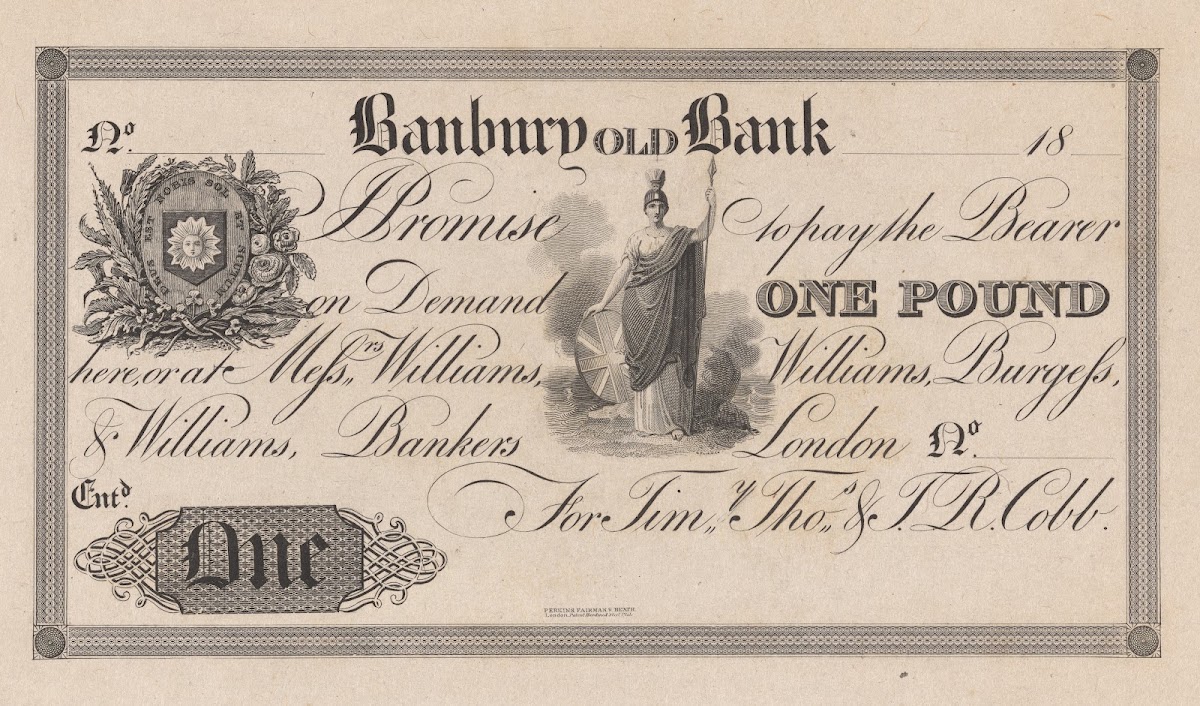 Nº. Banbury OLD Bank 18
EST NOBIS SOL ET
I Promise to pay the Bearer
on Demand ONE POUND
here, or at Meſs,,rs Williams, Williams, Burgeſs,
& Williams, Bankers London Nº.
Entd.
For Tim,,y Tho,,s & T. R. Cobb.
One
PERKINS FAIRMAN & HEATH
London, Patent Hardened Steel Plate